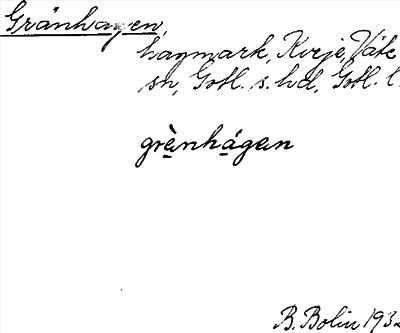 Gränhagen,
hagmark, Kvje, Väte
sn, Gotl. s. hd, Gotl. l.
grènhágen
B. Bolin 193